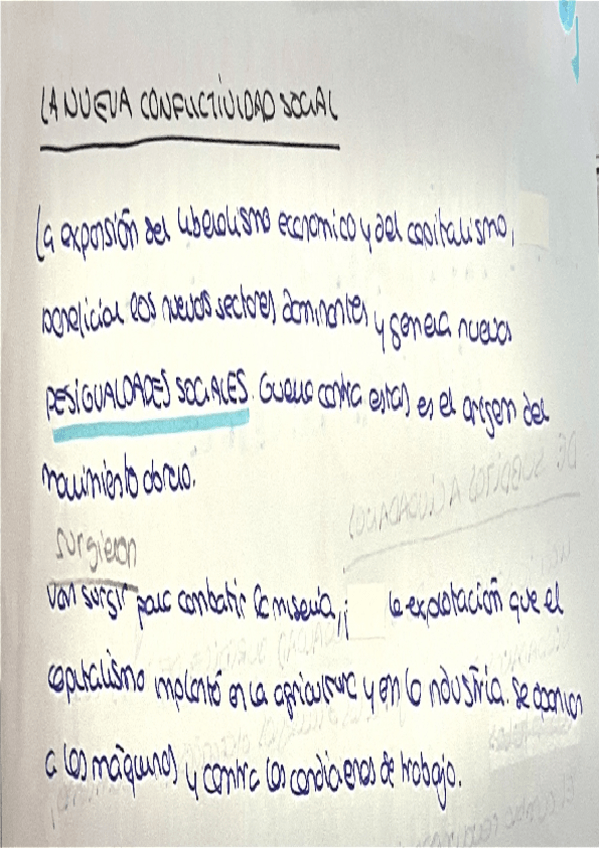 LA NUEVA CONFLICTIVIDAD SOCIAL
La expansión del liberalismo económico y del capitalismo,
beneficiar los nuevos sectores dominantes y genera nuevas
DESIGUALDADES SOCIALES. contra estas es el origen del
movimiento obrero.
Surgieron
Van surgir para combatir la miseria, la explotación que el
capitalismo implantó en la agricultura y en la industria. Se oponían
a las máquinas y contra las condiciones de trabajo.
DE SÚBDITOS A CIUDADANOS